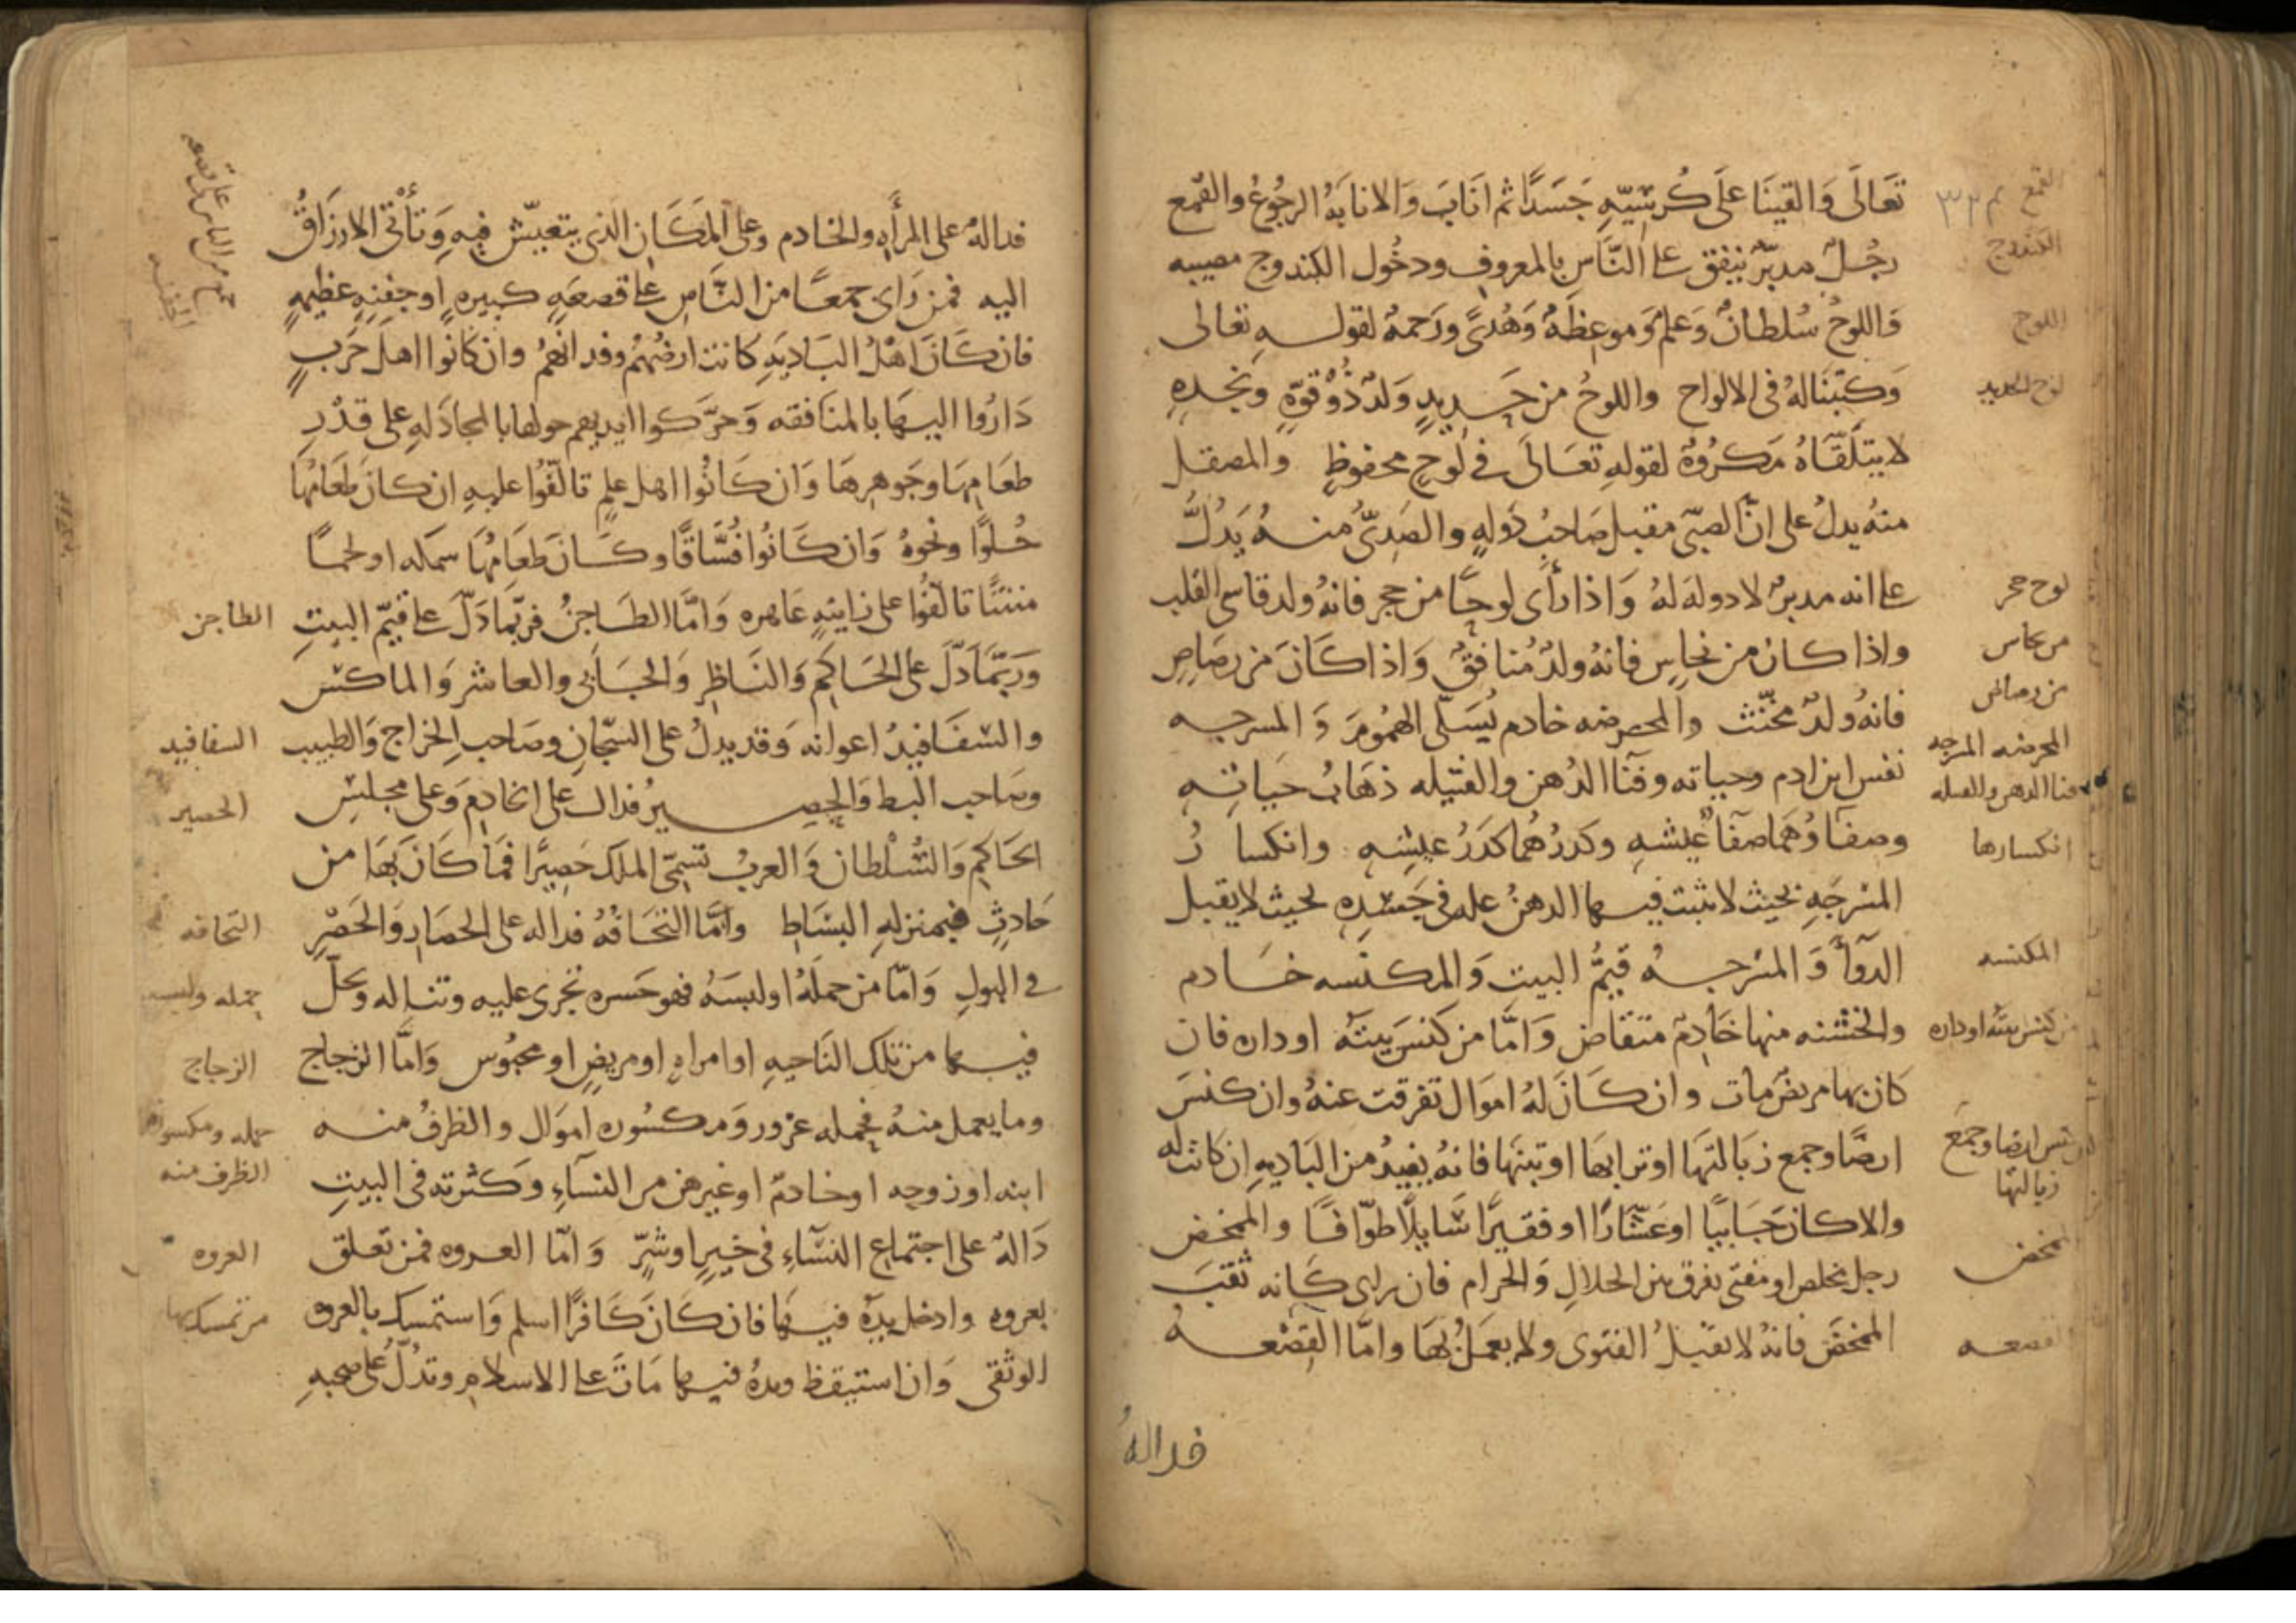 تَعَالَى وَالقَينَا عَلَى كُرسِيّهِ جَسَدًا ثم انَابَ وَالانابَهُ الرجُوعُ والقمع
رجُلٌ مدبّر ينفق على النَّاسِ بالمعروفِ ودخُول الكندوج مصيبه
وَاللوحُ سُلطانٌ وَعلمٌ وَموعِظَهٌ وَهُدىً ورَحمهٌ لقولـهِ تعالى
وَكتبنَا لهُ فى الالواح واللوحُ من حَـديدٍ وَلدٌ ذُو قوّهٍ ونجدهٍ
لا يتلَقّاهُ مَكروُهٌ لقولهِ تعَالَى فى لَوحٍ محفوظٍ والمصقل
منهُ يدلُ على انّ الصبّى مقبل صَاحِبُ دَولهٍ والصَدِىُّ منـهُ يَدُلُّ
على انه مدبرٌ لا دولهَ لهُ وَاذا رأى لوحًا من حجر فانهُ ولد قاسى القلب
واذا كان من نحاسٍ فانهُ ولدٌ مُنافقٌ وَاذا كَانَ من رصَاصٍ
فانهُ ولدٌ مخنّث والمحرضه خادم يُسَلّى الهمُومَ وَالمسرجه
نفس ابن ادم وحياته وفنآ الدُهن والفتيله ذهَابُ حَياتِـهِ
وصفآوُهَما صَفآ عيشهِ وكدرُهُما كدَرُ عيشهِ وانكسارُ
المسْرجَهِ بحيث لا يثبت فيـها الدهنُ علهٌ فى جَسَدِهِ بحيث لا يقبل
الدوآءَ وَالمسْرجـهُ قيمُّ البيت وَالمكنسه خَادم
والخشنه منها خَادِمٌ متقاضٍ وَامَّا من كَنسَ بيتَهُ او داره فان
كان بها مريضٌ مات وان كَانَ لهُ اموَال تفرقت عنهُ وان كنسَ
ارضًا وجمع زبَالتهَا او ترابهَا او تبنهَا فانهُ يفيدُ من البَاديهِ ان كانت له
والا كان جَابيًا او عَشّارًا او فقيرًا سَايلًا طوّافًا والممخض
رجل مخلص او مفتى يفرق بين الحلالِ وَالحرام فان راى كَانه ثقبَ
الممخض فانهُ لا يقبلُ الفتوى ولا يعمَلُ بهَا وامّا القصْعـهُ
فدالهُ
القمع
الكندوج
اللوح
لوح الحديد
لوح حجر
من نحاس
من رصاص
المحرضه المسرجه
فنا الدهن والفتيله
انكسارها
المكنسه
من كنس بيته او داره
كنس ارضا وجمع
زبالتها
الممخض
القصعه
فدالهُ على المرأهِ والخادم وعلى المكَان الذى يتعيّش فيهِ وَتأتى الارزَاقُ
اليه فمن رَاى جمعًا من النَّاس على قصعَهٍ كبيرهٍ او جفنهٍ عظيمهٍ
فان كَانَ اهْلُ البَاديَهِ كانت ارضُهمُ وفدانهُمُ وان كانوا اهلَ حَربٍ
دَارُوا اليـهَا بالمنافقه وَحَرّكوا ايديهم حولها بالمجادَلهِ على قدْرِ
طعَامِهَا وجَوهرِهَا وَان كَانُوا اهل علمٍ تالّفُوا عليهِ ان كانَ طعَامُهَا
حُلوًا ونحوهُ وَان كَانُوا فُسَّاقًا وكَانَ طعَامُهَا سمكه او لحمًا
منتنًا تالّفُوا على زانيهٍ عَاهره وَامَّا الطَاجنُ فربّما دَلّ على قيّم البيتِ
وَربّمَا دَلّ على الحَاكم وَالنَاظِرِ وَالجَابى والعاشر وَالماكس
والسّفَافيدُ اعوانه وَقد يدلُ على السّجّانِ وصَاحب الخراج وَالطبيب
وصَاحب البط وَالحصـيرُ فدال على الخادمِ وَعلى مجلسِ
الحَاكِم وَالسُلْطان وَالعربُ تسمّى الملكَ حَصِيرًا فمَا كَانَ بهَا من
حَادثٍ فبمنزلهِ البسَاطِ وامَّا التحَافُهُ فداله على الحصَارِ وَالحَصْرِ
فى البولِ وَامّا من حملَهُ او لبسَهُ فهو حَسره تجرى عليه وتناله ويحلّ
فيـها من تلك النَاحيهِ او امراهٍ او مريضٍ او محبُوس وَامَّا الزجاج
وما يعمل منهُ فحمله غرور وَمكسُوره اموَال والظرفُ منـه
ابنه او زوجه او خادمٌ او غيرهن من النسآءِ وَكثرته فى البيتِ
دَالهٌ على اجتماع النسآءِ فى خيرٍ او شرٍّ وَامّا العـروه فمن تعلق
بعروه وادخل يدهَ فيـهَا فان كَانَ كَافرًا اسلم وَاستمسك بالعروه
الوثقى وَان استيقظ ويدهُ فيـها مَاتَ على الاسلام وتدُلّ على صحبهِ
الطاجن
السفافيد
الحصير
التحافه
حمله ولبسه
الزجاج
حمله ومكسوره
الظرف منه
العروه
من تمسك بها